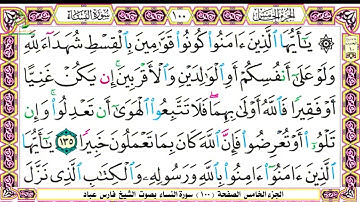 الجزء الخامس ١٠٠ سورة النساء
يَـٰٓأَيُّهَا ٱلَّذِينَ ءَامَنُوا۟ كُونُوا۟ قَوَّٰمِينَ بِٱلْقِسْطِ شُهَدَآءَ لِلَّهِ
وَلَوْ عَلَىٰٓ أَنفُسِكُمْ أَوِ ٱلْوَٰلِدَيْنِ وَٱلْأَقْرَبِينَ ۚ إِن يَكُنْ غَنِيًّا
أَوْ فَقِيرًا فَٱللَّهُ أَوْلَىٰ بِهِمَا ۖ فَلَا تَتَّبِعُوا۟ ٱلْهَوَىٰٓ أَن تَعْدِلُوا۟ ۚ وَإِن
تَلْوُۥٓا۟ أَوْ تُعْرِضُوا۟ فَإِنَّ ٱللَّهَ كَانَ بِمَا تَعْمَلُونَ خَبِيرًا ١٣٥ يَـٰٓأَيُّهَا
ٱلَّذِينَ ءَامَنُوٓا۟ ءَامِنُوا۟ بِٱللَّهِ وَرَسُولِهِۦ وَٱلْكِتَـٰبِ ٱلَّذِى نَزَّلَ
الجزء الخامس الصفحة (١٠٠) سورة النساء بصوت الشيخ فارس عباد